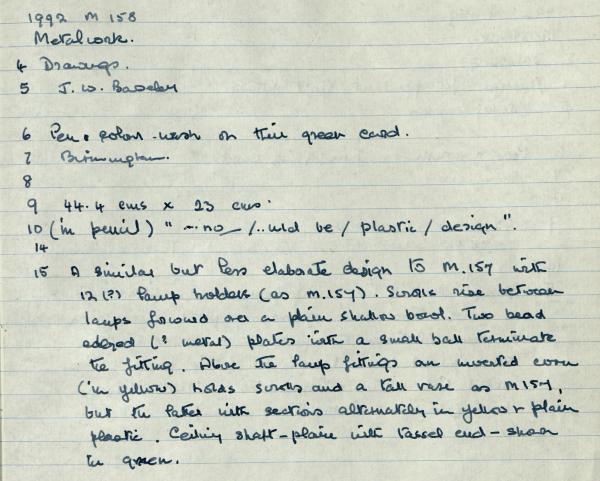 1992 M 158
Metalwork.
4 Drawings.
5 J. W.
6 Pen & colour-wash on thin green card.
7 Birmingham.
8
9 44.4 cms x 23 cms.
10 (in pencil) " ...no / ..uld be / plastic / design ".
14
15 A similar but less elaborate design to M.157 with
12 (?) lamp holders (as M.157). Scrolls rise between
lamps over a plain shallow bowl. Two bead
edged (? metal) plates with a small ball terminate
the fitting. Above the lamp fittings an inverted
(in yellow) holds scrolls and a tall vase as M157,
but the latter with sections alternately in yellow & plain
plastic. Ceiling shaft - plain with tassel end - shown
in green.